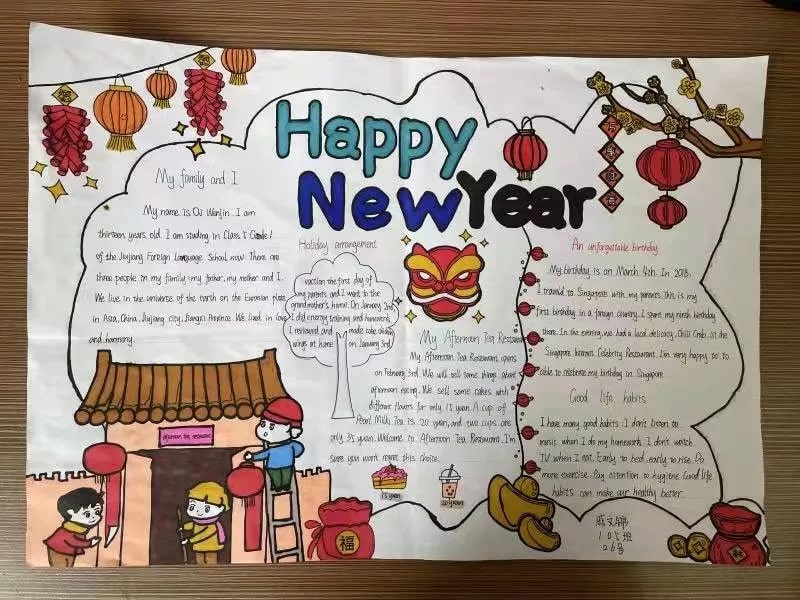 Happy
New Year
My family and I
My name is Qi Wenjin. I am
thirteen years old. I am studing in Class 5 Grade 1
of the Jiujiang Foreign Language School now. There are
three people in my family - my father, my mother and I.
We live in the universe of the earth on the Eurasian plate
in Asia, China, Jiujiang city, Jiangxi Province. We lived in love
and harmony.
Holiday arrangement
vacation the first day of
my parents and I went to the
grandmother's home. On January 2nd,
I did energy training and homework,
I reviewed and made coke chicken
wings at home on January 3rd.
My Afternoon Tea Restaurant
My Afternoon Tea Restaurant opens
on February 3rd. We will sell some things about
afternoon eating. We sell some cakes with
different flavors for only 15 yuan. A cup of
Pearl Milk Tea is 20 yuan, and two cups are
only 35 yuan. Welcome to Afternoon Tea Restaurant. I'm
sure you won't regret this choice.
15 yuan
20 yuan
An unforgettable birthday
My birthday is on March 4th. In 2018,
I traveld to Singapore with my parents. This is my
first birthday in a foreign country. I spent my ninth birthday
there. In the evening, we had a local delicacy, Chili Crab, at the
Singapore Internet Celebrity Restaurant. I'm very happy to
able to celebrate my birthday in Singapore
Good life habits
I have many good habits. I don't listen to
music when I do my homework. I don't watch
TV when I eat. Early to bed, early to rise. Do
more exercise. Pay attention to hygiene. Good life
habits can make our healthy better.
afternoon tea restaurant
福
105班
26号